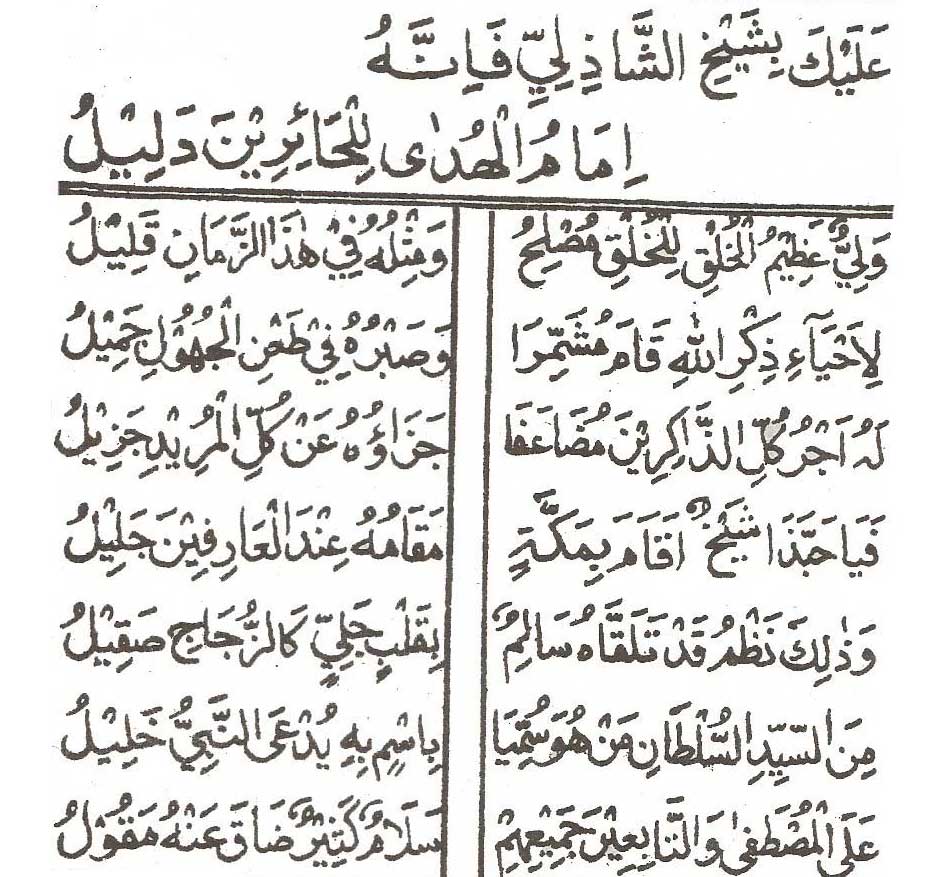 عَلَيْكَ بِشَيْخِ الشَّاذِلِيِّ فَإِنَّهُ
اِمَامُ الْهُدٰى لِلْحَائِرِيْنَ دَلِيْلُ
وَلِيٌّ عَظِيْمُ الْخُلْقِ لِلْخَلْقِ مُصْلِحُ وَمِثْلُهُ فِيْ هٰذَا الزَّمَانِ قَلِيْلُ
لِاَحْيَآءِ ذِكْرِ اللّٰهِ قَامَ مُشَمِّرَا وَصَبْرُهُ فِيْ طَعْنِ الْجُهُوْلِ جَمِيْلُ
لَهُ اَجْرُ كُلِّ الذَّاكِرِيْنَ مُضَاعَفَا جَزَاؤُهُ عَنْ كُلِّ الْمُرِيْدِ جَزِيْلُ
فَيَا حَبَّذَا شَيْخٌ اَقَامَ بِمَكَّةٍ مَقَامُهُ عِنْدَ الْعَارِفِيْنَ جَلِيْلُ
وَذٰلِكَ نَظْمُ قَدْ تَلَقَّاهُ سَالِمٌ بِقَلْبٍ جَلِيٍّ كَالزُّجَاجِ صَقِيْلُ
مِنَ السَّيِّدِ السُّلْطَانِ مَنْ هُوَ سُمِّيَا بِاسْمٍ بِهِ يُدْعَى النَّبِيُّ خَلِيْلُ
عَلَى الْمُصْطَفٰى وَالتَّابِعِيْنَ جَمِيْعِهِمْ سَلَامٌ كَثِيْرٌ ضَاقَ عَنْهُ مَقُوْلُ